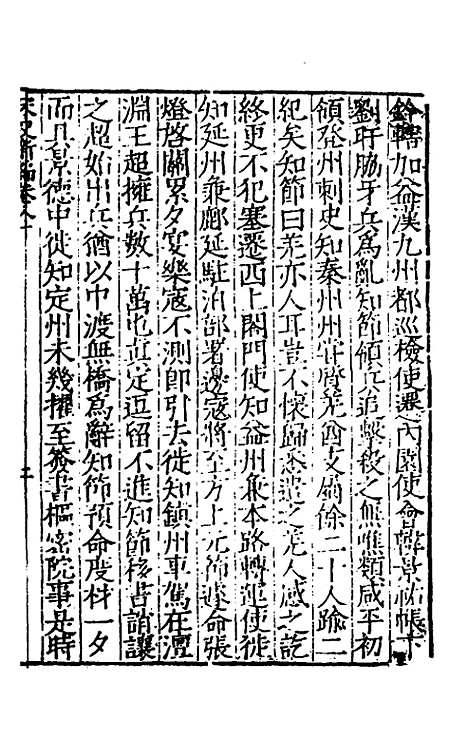 鈐轄加益漢九州都巡檢使遷內園使會韓景祐帳下
劉旴脇牙兵爲亂知節領兵追擊殺之無噍類咸平初
領登州刺史知秦州州嘗質羌酋支屬餘二十人踰二
紀矣知節曰羌亦人耳豈不懷歸悉遣之羌人感之訖
終更不犯塞遷西上閤門使知益州兼本路轉運使徙
知延州兼鄜延駐泊部署邊寇將至方上元節遽命張
燈啓關累夕宴樂寇不測即引去徙知鎮州車駕在澶
淵王超擁兵數十萬屯真定逗留不進知節移書誚讓
之超始出兵猶以中渡無橋爲辭知節預命度材一夕
而具景德中徙知定州未幾擢至簽書樞密院事是時
宋史新編卷八十
二